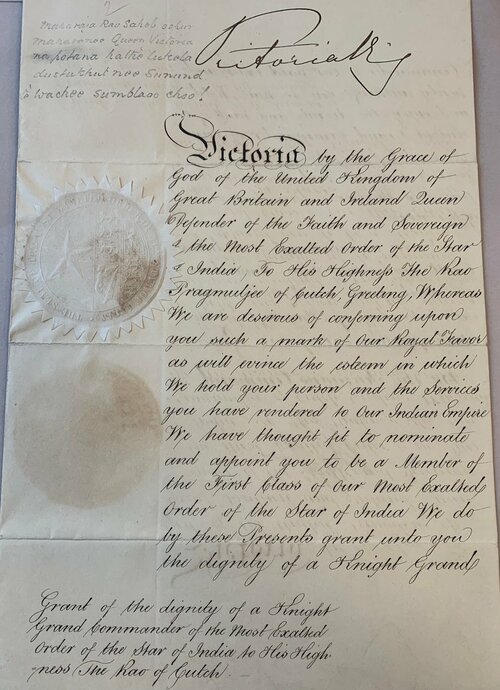 Maharaja Rao Saheb
maharanee Queen Victoria
na potana hathe
dustukhut nee Sunund
wachee sumblaoo choo!
Victoria R
Victoria by the Grace of
God of the United Kingdom of
Great Britain and Ireland Queen
Defender of the Faith and Sovereign
of the Most Exalted Order of the Star
of India, To His Highness The Rao
Pragmuljee of Cutch, Greeting, Whereas
We are desirous of conferring upon
you such a mark of Our Royal Favor
as will evince the esteem in which
We hold your person and the Services
you have rendered to Our Indian Empire
We have thought fit to nominate
and appoint you to be a Member of
the First Class of Our Most Exalted
Order of the Star of India We do
by these Presents grant unto you
the dignity of a Knight Grand
Grant of the dignity of a Knight
Grand Commander of the Most Exalted
Order of the Star of India to His High-
-ness The Rao of Cutch.